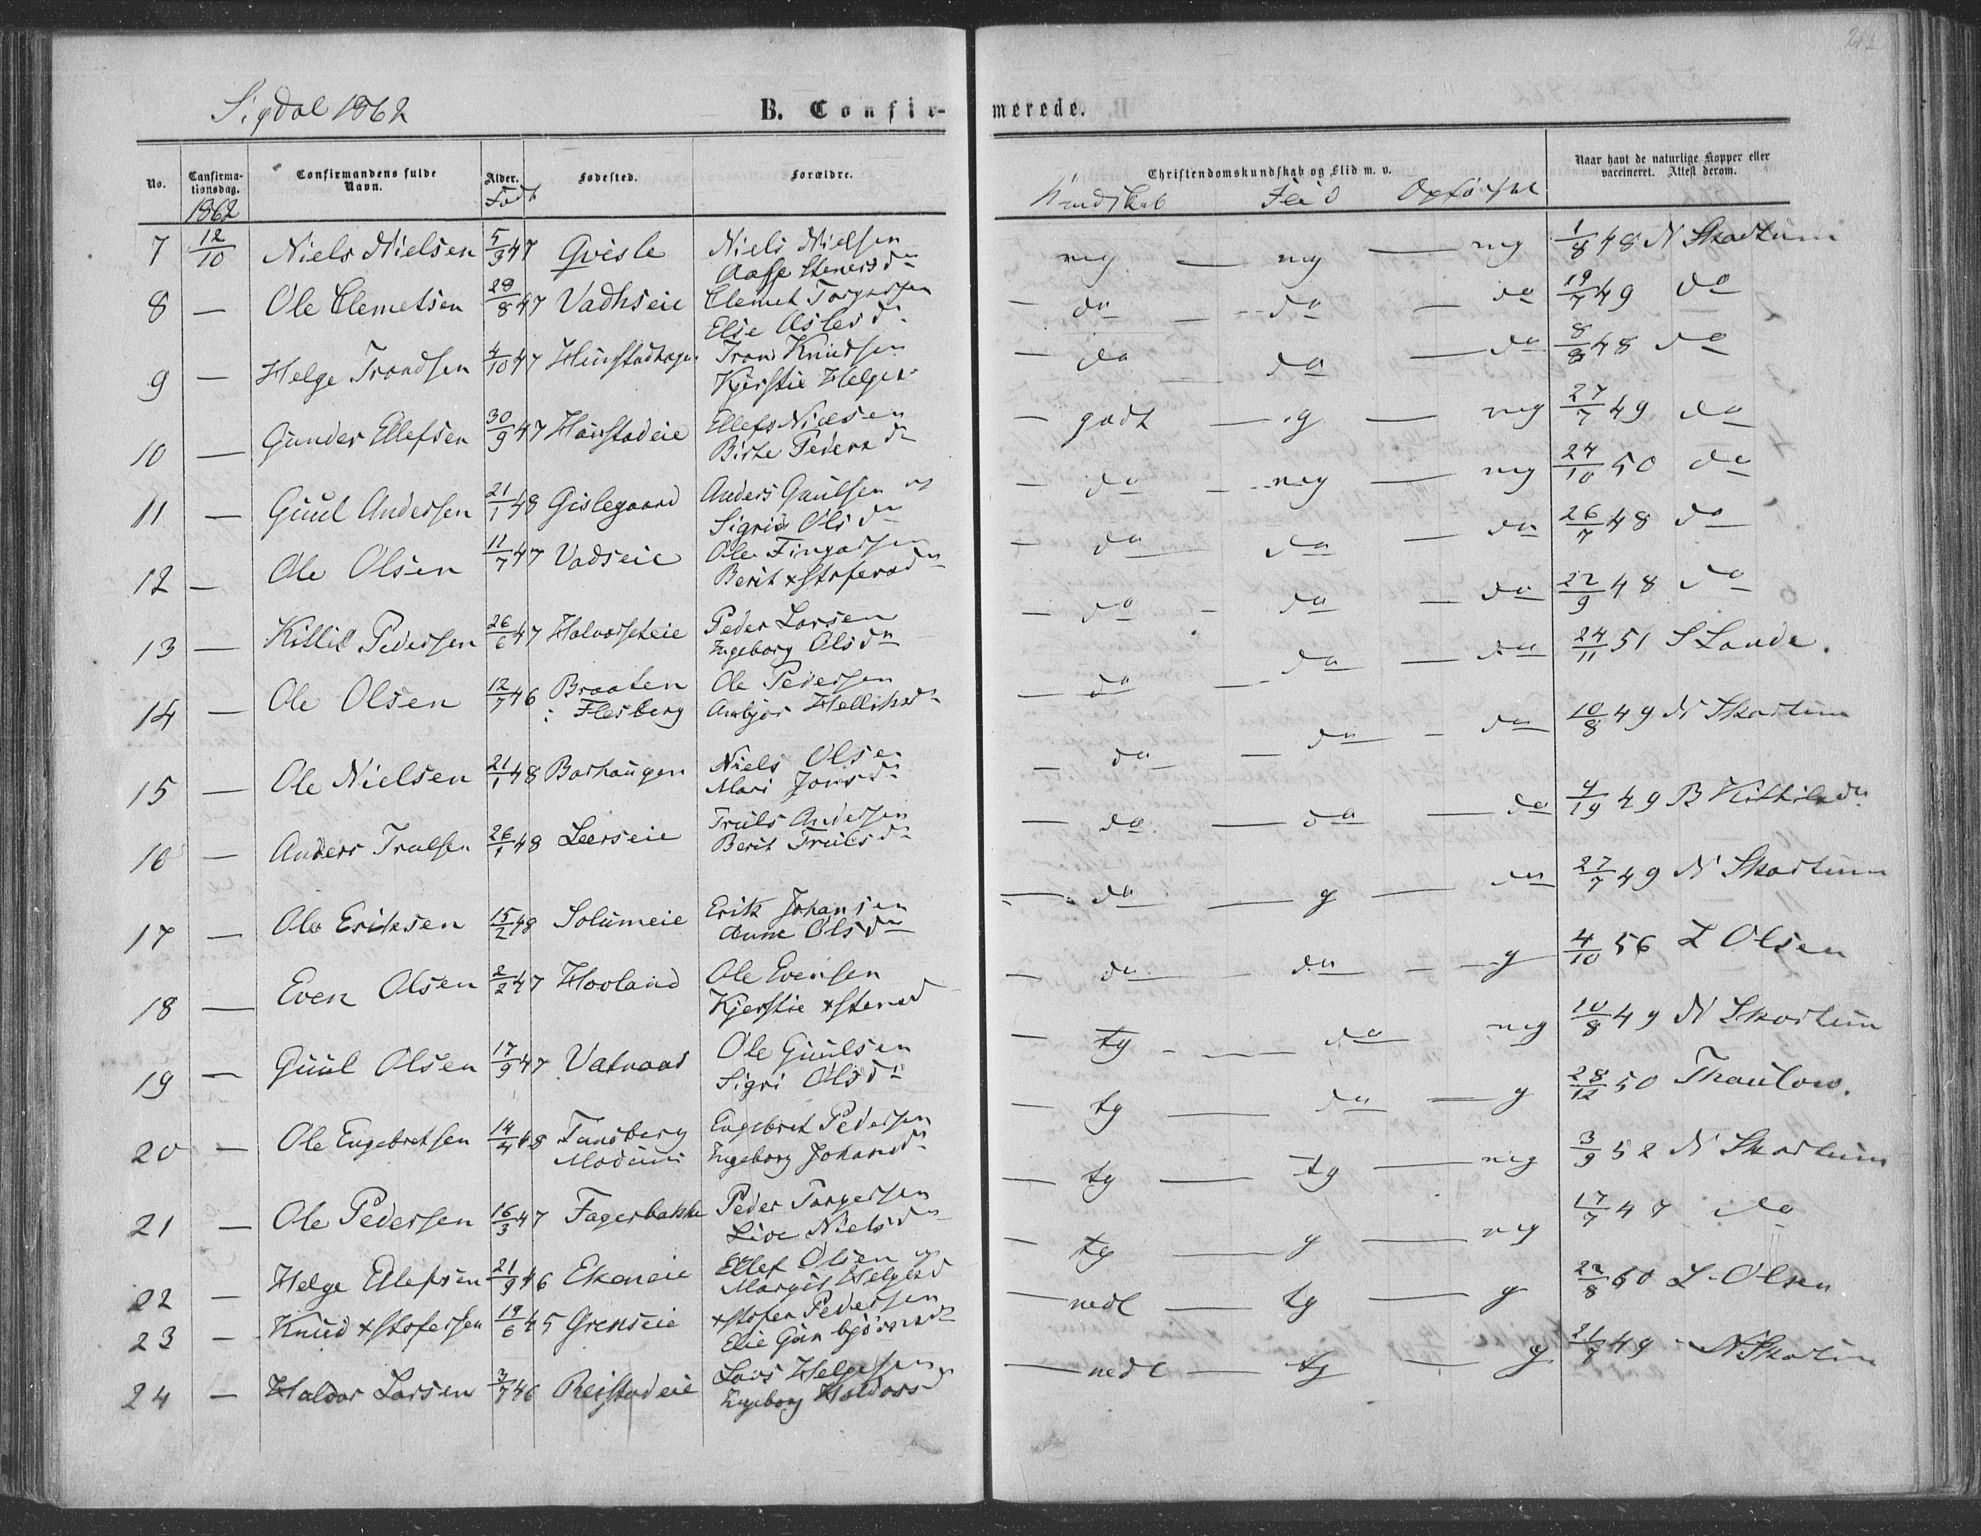 Sigdal 1862
B. Confir-
merede.
No.
Confirma-
tionsdag.
1862
Confirmandens fulde
Navn.
Alder.
Født
Fødested.
Forældre.
Christendomskundskab og Flid m. v.
Kundskab Flid Opførsel
Naar havt de naturlige Kopper eller
vaccineret. Attest derom.
7 12/10 Niels Nielsen 5/3 47 Gvisle Niels Nielsen
Aasse Stenersdr
mg — mg — mg 1/8 48 N Skartum
8 — Ole Clemetsen 29/8 47 Vadhseie Clemet Torgersen
Else Aslesdr
— do — do — do 19/7 49 do
9 — Helge Trondsen 4/10 47 Trond Knudsen
Kjerstie Helges
— do do — do 8/8 48 do
10 — Gunder Ellefsen 30/9 47 Haustadeie Ellef Nielsen
Birte Pedersd
— godt — g — mg 27/7 49 do
11 — Guul Andersen 21/1 48 Gislegaard Anders Guulsen og
Sigrid Olsdr
— do — mg — mg 24/10 50 do
12 — Ole Olsen 11/7 47 Vadseie Ole Fingarsen
Berit xstofersdr
— do do — do 26/7 48 do
13 — Killil Pedersen 26/6 47 Halvorseteie Peder Larsen
Ingeborg Olsdn
— do — do — do 22/9 48 do
14 — Ole Olsen 12/7 46 Braaten
i Flesberg Ole Pedersen
Ambjør Helliksdr
— do — do — do 24/11 51 S Lande.
15 — Ole Nielsen 21/1 48 Borhaugen Niels Olsen
Mari Jonsdr
— do — do — do 10/8 49 N Skartum
16 — Anders Trulsen 26/1 48 Leerseie Truls Andersen
Berit Trulsdr
— do — do — do 4/19 49 B Kittilsdr
17 — Ole Eriksen 15/2 48 Solumeie Erik Johansen
Anne Olsdr
— do — g — do 27/7 49 N Skartum
18 — Even Olsen 2/2 47 Hovland Ole Evensen
Kjerstie xstensd
— do — do — g 4/10 56 L Olsen
19 — Guul Olsen 17/9 47 Vatnaas Ole Guulsen
Sigri Olsdr
— tg — do mg 10/8 49 N Skartum
20 — Ole Engebretsen 14/4 48 Tandberg
Modum Engebret Pedersen
Ingeborg Johansdr
— tg — do — g 28/12 50 Thaulow.
21 — Ole Pedersen 16/3 47 Fagerbakke Peder Torgersen
Live Nielsdr
— tg — tg — mg 3/9 52 N Skartum
22 — Helge Ellefsen 21/9 46 Ekoneie Ellef Olsen og
Margit Helgesd
— tg — g — mg 17/7 47 do
23 — Knud xstofersen 19/6 45 Grenseie xstofer Pedersen
Elie Gunbjørnsdr
— nedl — tg — g 22/8 60 L. Olsen
24 — Haldor Larsen 3/7 46 Reistadeie Lars Helgesen
Ingeborg Haldorsd
— nedl — tg — g 21/7 49 N Skartum